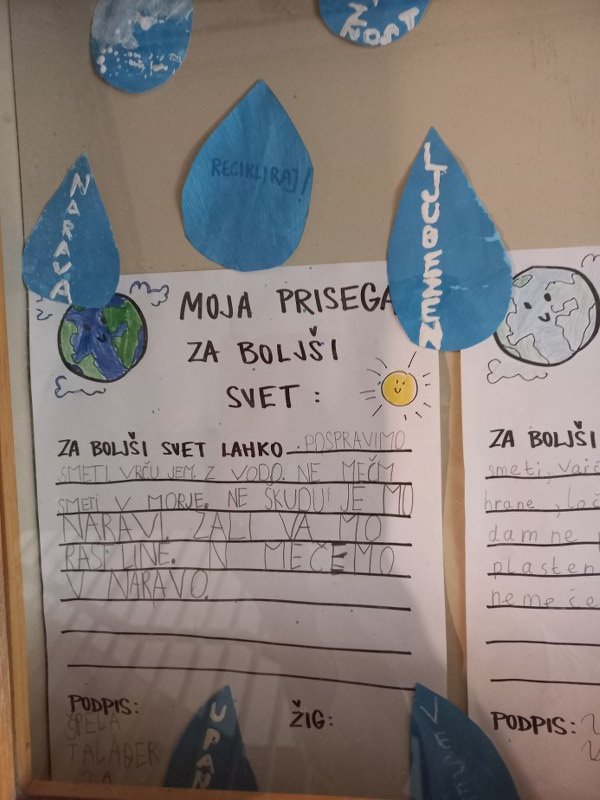 NOST
RECIKLIRAJ!
NARAVA
LJUBEZEN
MOJA PRISEGA
ZA BOLJŠI
SVET:
ZA BOLJŠI SVET LAHKO POSPRAVIMO
SMETI. VRČUJEM. Z VODO. NE MEČM
SMETI V MORJE. NE ŠKUDUJEMO
NARAVI. ZALIVAMO
RASLINE. N MEČEMO
V NARAVO.
PODPIS:
ŠPELA
TALABER
2.A
ŽIG:
UPAN
ZA BOLJŠI
smeti,
hrane, loč
dam ne
plasten
nemeče
PODPIS: